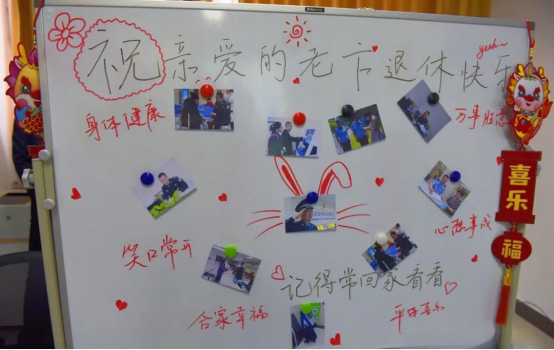 祝亲爱的老卞退休快乐
yeah~
身体健康
万事胜意
喜乐
福
心想事成
笑口常开
记得常回家看看
合家幸福
平安喜乐